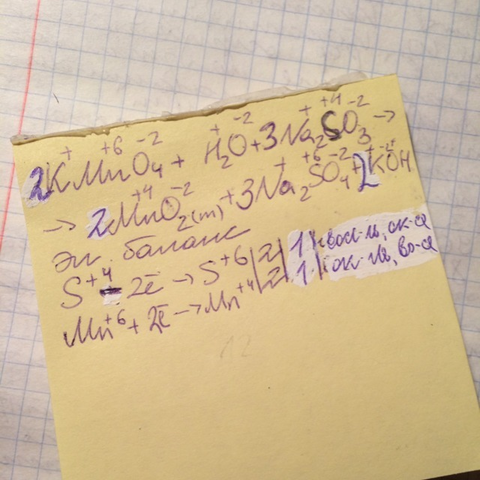 2K⁺Mn⁺⁶O₄⁻² + H₂⁺O⁻² + 3Na₂⁺S⁺⁴O₃⁻² →
→ 2Mn⁺⁴O₂⁻²(т) + 3Na₂⁺S⁺⁶O₄⁻² + 2K⁺O⁻²H⁺
Эл. баланс
S⁺⁴ - 2ē → S⁺⁶ |2| 1 | вос-ль, ок-ся
Mn⁺⁶ + 2ē → Mn⁺⁴ |2| 1 | ок-ль, во-ся